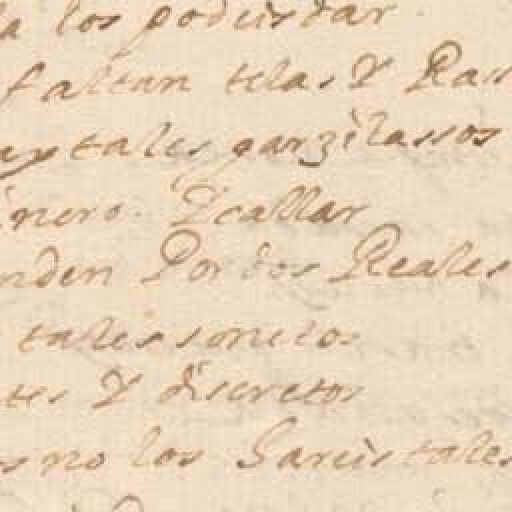 la los podiis dar
faltan telas Y Ras
ay tales garzilassos
inero. Y callar
nden Por dos Reales
tales sonetos
tes Y discretos
no los Gareis tales